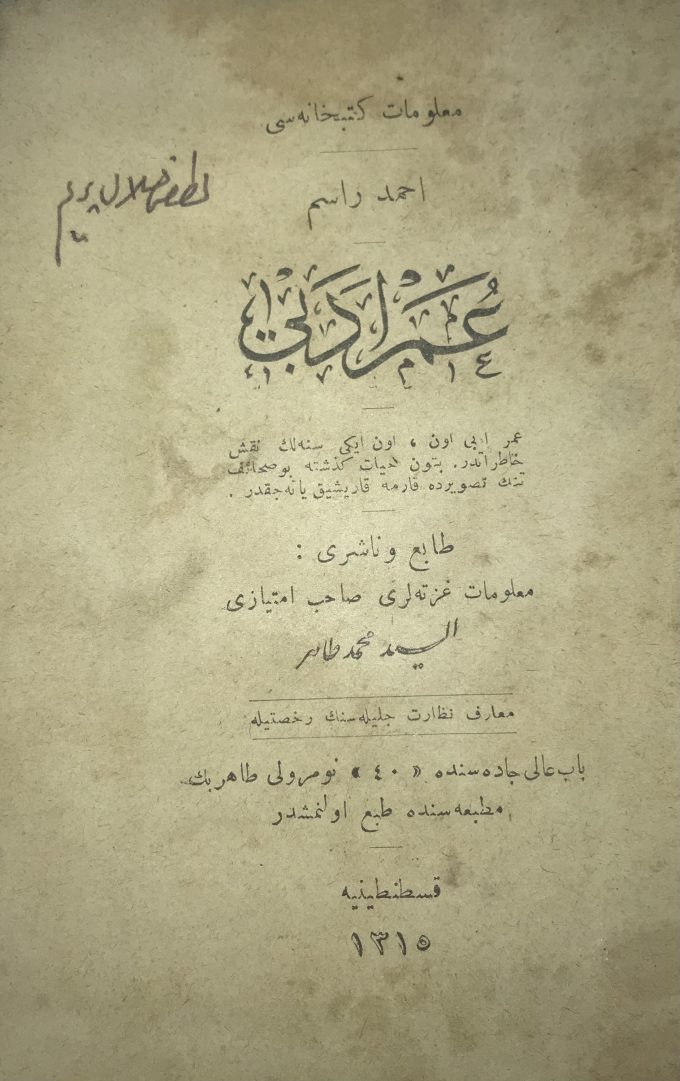 معلومات كتبخانه‌سی
احمد راسم
عُمر ادبی
عمر ادبی اون ، اون ایكی سنه‌لك نقش
خاطراتدر. بتون حیات گذشته بوصحائف
تنك تصویرده قارمه قاریشیق یانه‌جقدر .
طابع وناشری :
معلومات غزته‌لری صاحب امتیازی
السید محمد طاهر
معارف نظارت جلیله‌سنك رخصتیله
باب عالی جاده‌سنده « ٤٠ » نومرولی طاهر بك
مطبعه‌سنده طبع اولنمشدر
قسطنطینیه
١٣١٥